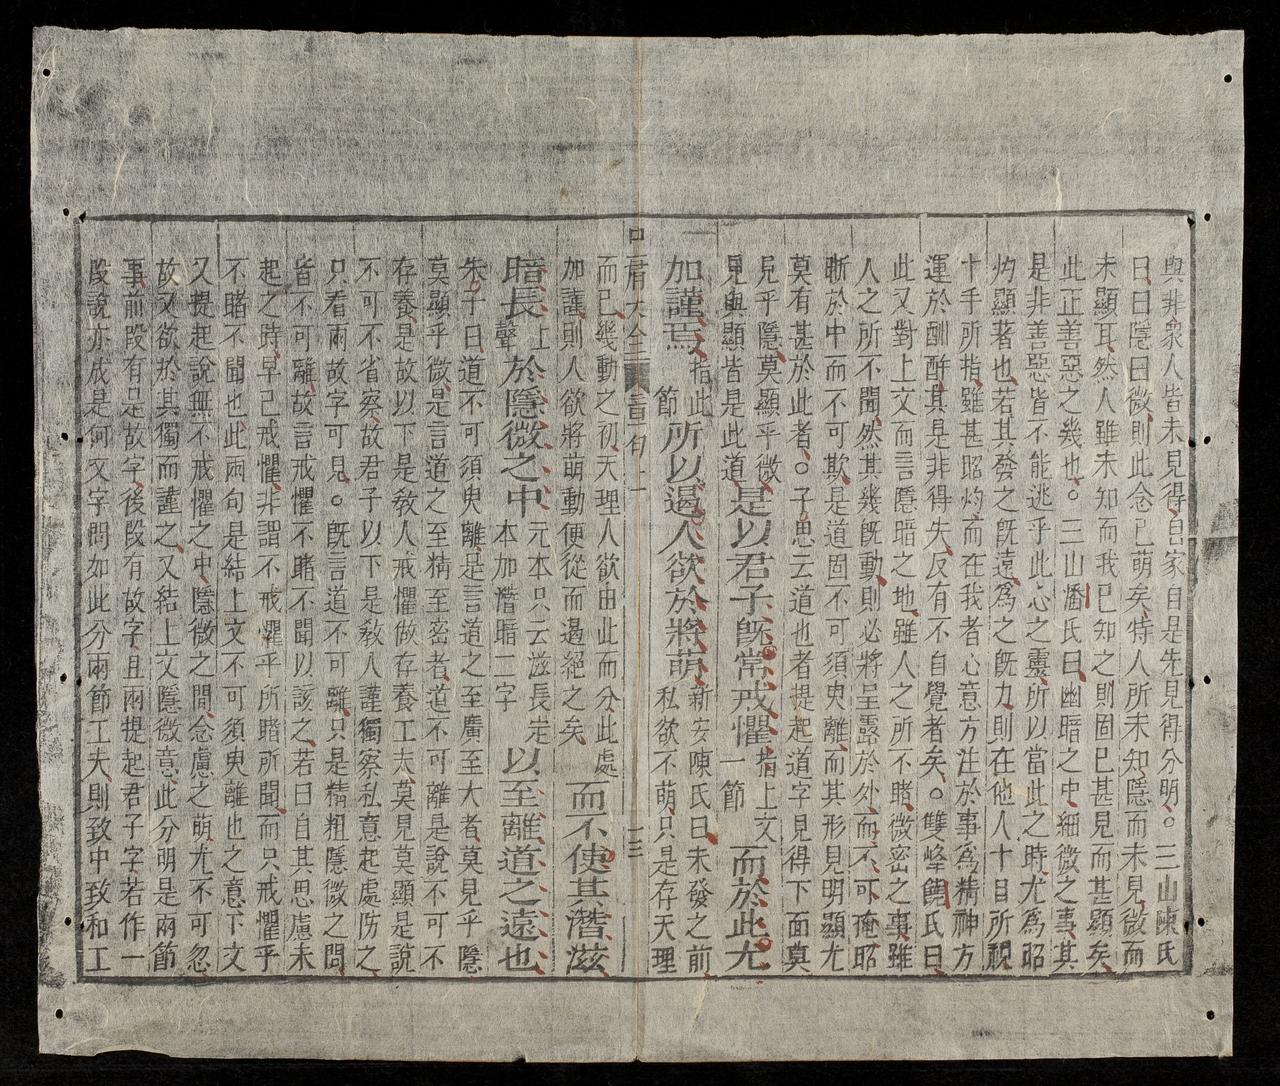 與非衆人皆未見得自家自是先見得分明。三山陳氏
曰曰隱曰微則此念已萌矣特人所未知隱而未見微而
未顯耳然人雖未知而我已知之則固已甚見而甚顯矣
此正善惡之幾也。三山潘氏曰幽暗之中細微之事其
是非善惡皆不能逃乎此心之靈所以當此之時尤爲昭
灼顯著也若其發之旣遠爲之旣力則在他人十目所視
十手所指雖甚昭灼而在我者心意方注於事爲精神方
運於酬酢其是非得失反有不自覺者矣。雙峰饒氏曰
此又對上文而言隱暗之地雖人之所不睹微密之事雖
人之所不聞然其幾旣動則必將呈露於外而不可掩昭
晰於中而不可欺是道固不可須臾離而其形見明顯尤
莫有甚於此者。子思云道也者提起道字見得下面莫
見乎隱莫顯乎微
見與顯皆是此道
是以君子旣常戒懼
指上文
一節
而於此尤
加謹焉
指此
節
所以遏人欲於將萌
新安陳氏曰未發之前
私欲不萌只是存天理
中庸大全 章句 十三
而已幾動之初天理人欲由此而分此處
加謹則人欲將萌動便從而遏絕之矣
而不使其潛滋
暗長
上
聲
於隱微之中
元本只云滋長定
本加潛暗二字
以至離道之遠也
朱子曰道不可須臾離是言道之至廣至大者莫見乎隱
莫顯乎微是言道之至精至密者道不可離是說不可不
存養是故以下是敎人戒懼做存養工夫莫見莫顯是說
不可不省察故君子以下是敎人謹獨察私意起處防之
只看兩故字可見。旣言道不可離只是精粗隱微之間
皆不可離故言戒懼不睹不聞以該之若曰自其思慮未
起之時早已戒懼非謂不戒懼乎所睹所聞而只戒懼乎
不睹不聞也此兩句是結上文不可須臾離也之意下文
又提起說無不戒懼之中隱微之間念慮之萌尤不可忽
故又欲於其獨而謹之又結上文隱微意此分明是兩節
事前段有是故字後段有故字且兩提起君子字若作一
段說亦成是何文字問如此分兩節工夫則致中致和工